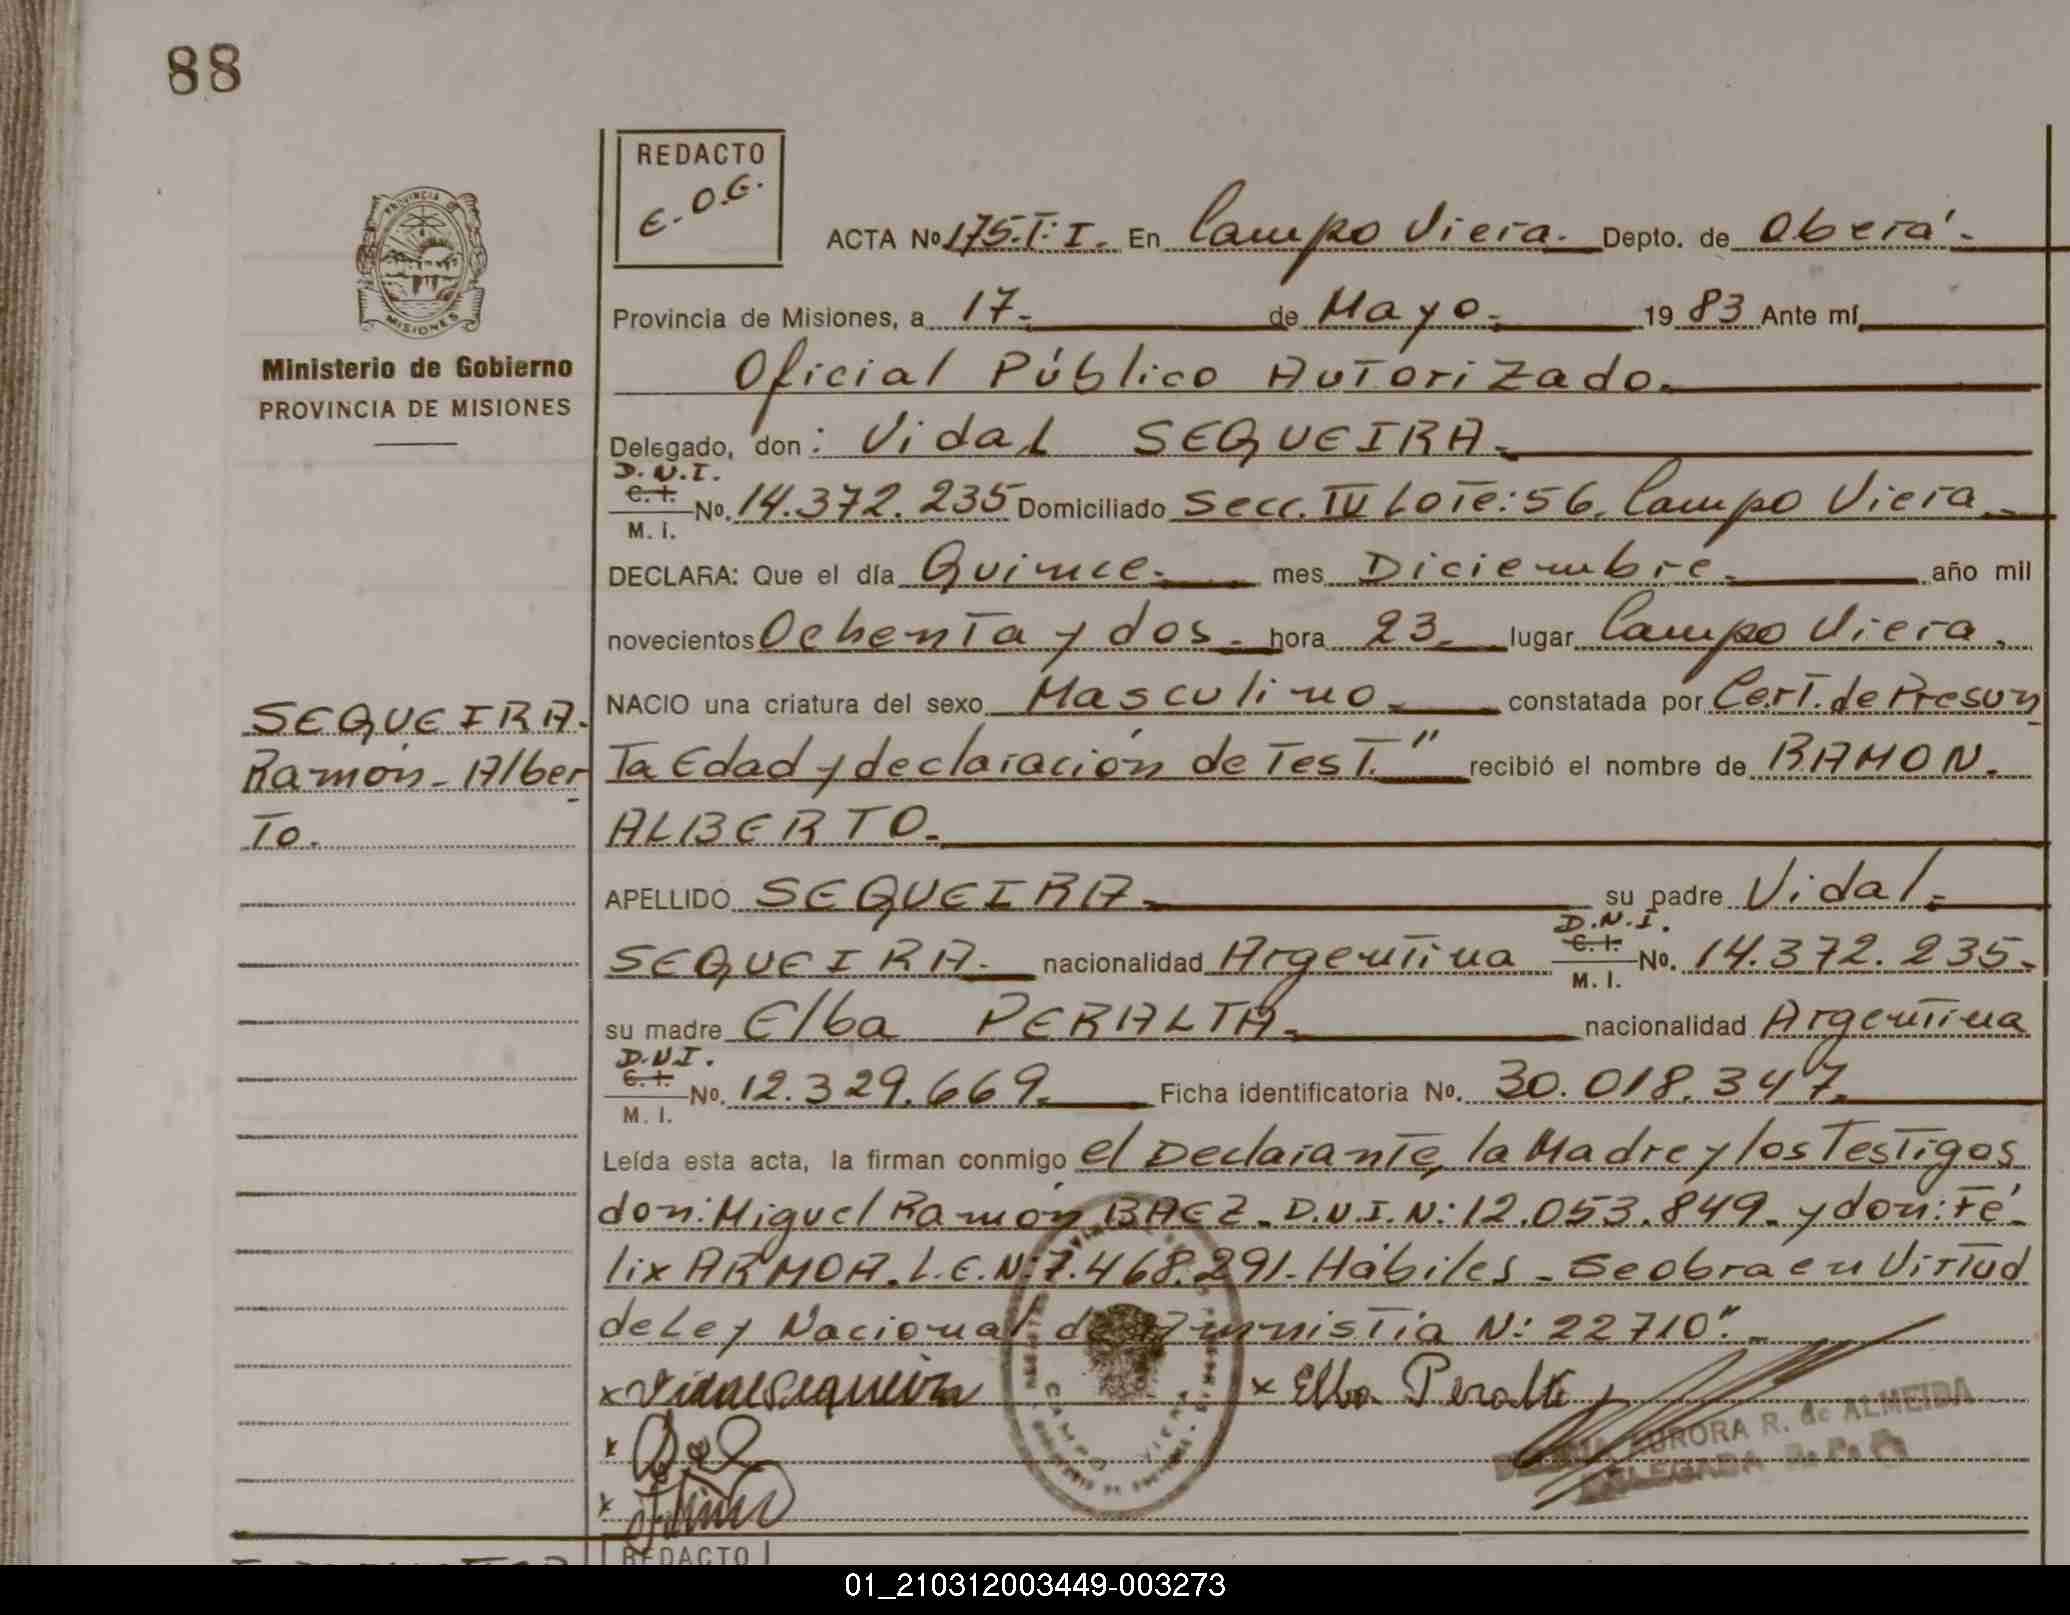 88
REDACTO
E.O.G.
PROVINCIA
MISIONES
Ministerio de Gobierno
PROVINCIA DE MISIONES
ACTA Nº 175.T:I. En Campo Viera. Depto. de Oberá.
Provincia de Misiones, a 17. de Mayo. 1983 Ante mí
Oficial Público Autorizado.
Delegado, don: Vidal SEQUEIRA.
D.N.I.
C.I.
M. I. Nº. 14.372.235 Domiciliado Secc. IV Lote: 56. Campo Viera.
DECLARA: Que el día Quince. mes Diciembre. año mil
novecientos Ochenta y dos. hora 23. lugar Campo Viera.
NACIO una criatura del sexo Masculino. constatada por Cert. de Presun
ta Edad y declaración de Test." recibió el nombre de RAMON.
ALBERTO.
SEQUEIRA.
Ramón. Alber
to.
APELLIDO SEQUEIRA. su padre Vidal.
SEQUEIRA. nacionalidad Argentina D.N.I. C.I. M. I. Nº. 14.372.235.
su madre Elba PERALTA. nacionalidad Argentina
D.N.I.
C.I.
M. I. Nº. 12.329.669. Ficha identificatoria Nº. 30.018.347.
Leída esta acta, la firman conmigo el Declarante, la Madre y los Testigos
don: Miguel Ramón BAEZ. D.N.I.N: 12.053.849. y don: Fé
lix ARMOA. L.E.N: 7.468.291. Hábiles. Se obra en Virtud
de Ley Nacional de Amnistia N: 22710".
x Vidal Sequeira x Elba Peralta
CAMPO VIERA
AURORA R. de ALMEIDA
DELEGADA
REDACTO
01_210312003449-003273